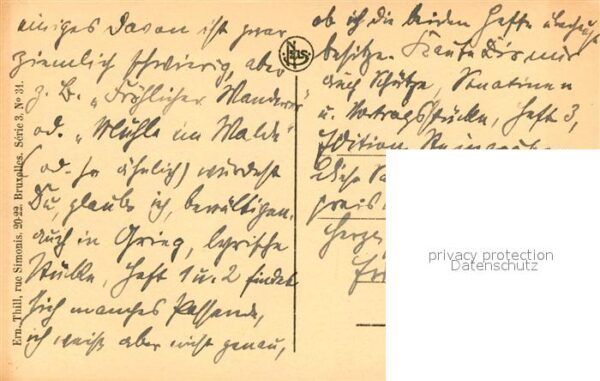 einiges davon ist zwar
ziemlich schwierig, aber
z. B. „Fröhlicher Wanderer“
od. „Mühle im Walde“
(od. so ähnlich) würdest
Du, glaube ich, bewältigen.
Auch in Grieg, lyrische
Stücke, Heft 1 u. 2 findet
sich manches Passende,
ich weiß aber nicht genau,
ob ich die beiden Hefte überhaupt
besitze. Kaufe Dir mir
auch Schütze, Sonatinen
u. Vortragsstücke, Heft 3,
Edition
Diese
preis
Herzl
Ern. Thill, rue Simonis, 20-22, Bruxelles. Série 3, No 31.
privacy protection
Datenschutz